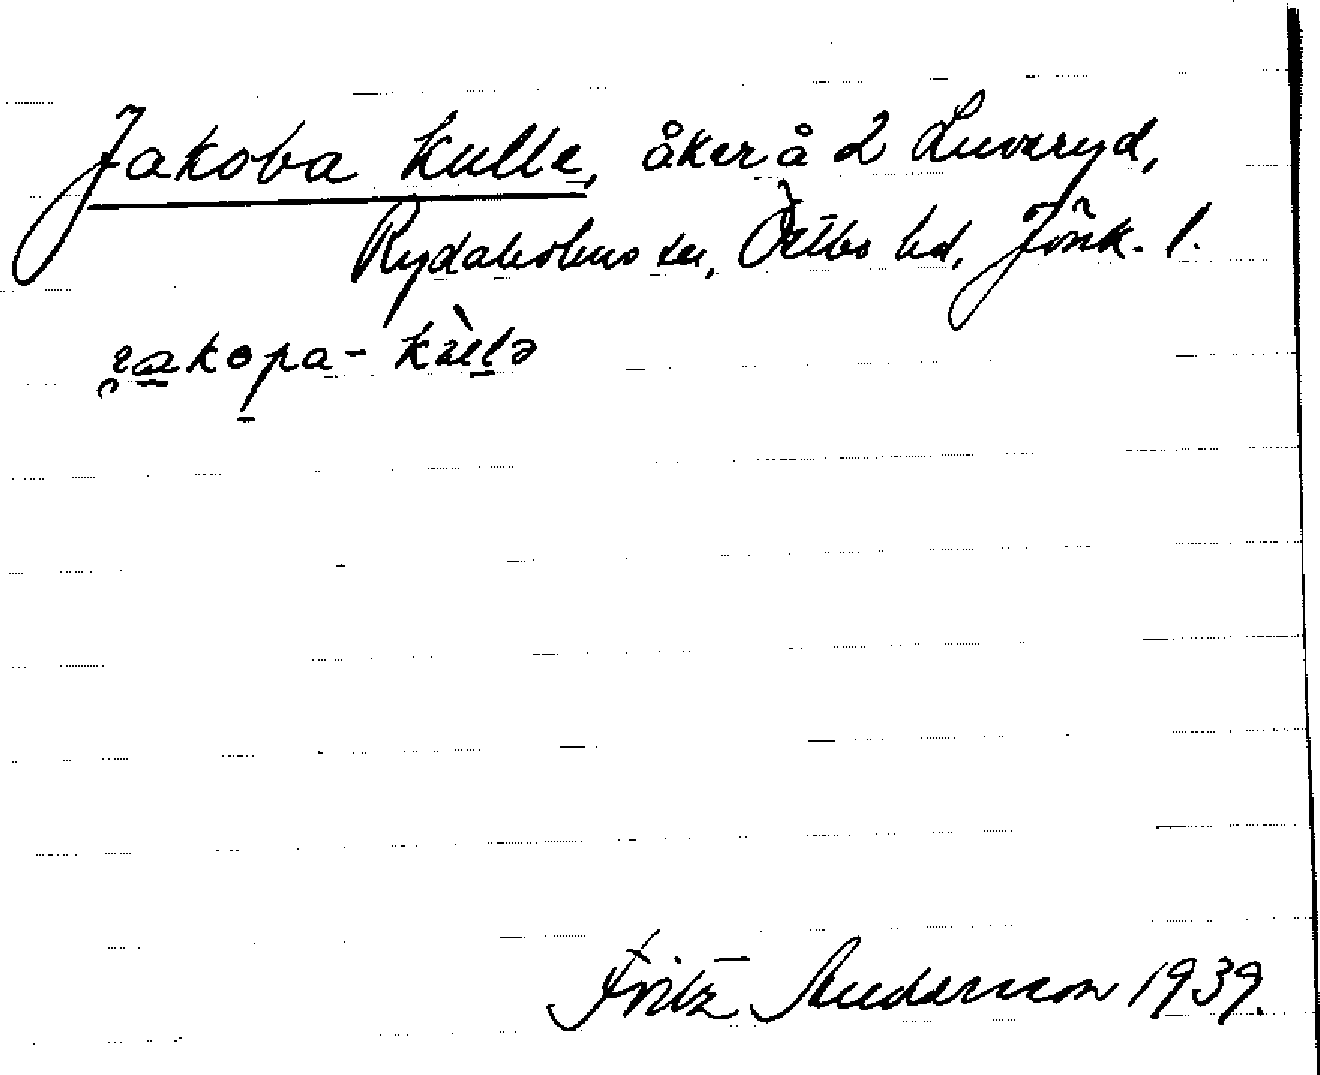 Jakoba kulle, åker å 2 Luvaryd,
Rydaholms sn, Östbo hd, Jönk. l.
Fritz Andersson 1939.